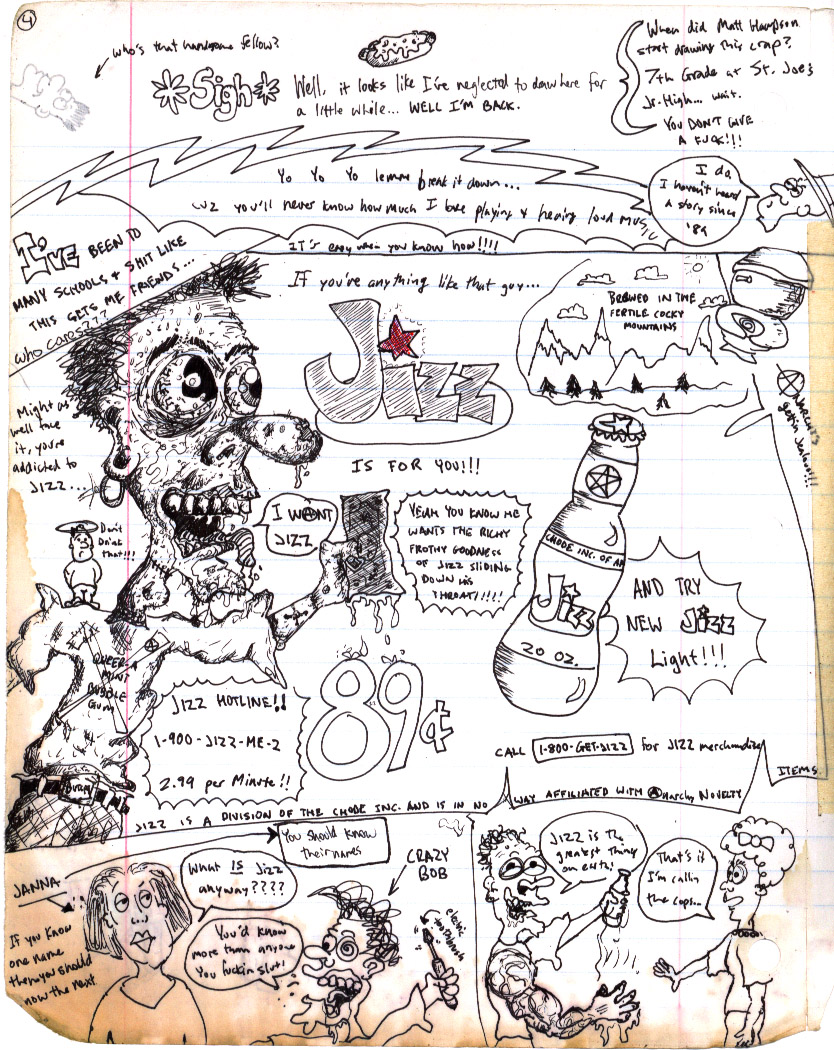 4
Who's that handsome fellow?
*Sigh*
Well, it looks like I've neglected to draw here for
a little while... WELL I'M BACK.
When did Matt Hampson
start drawing this crap?
7th Grade at St. Joe's
Jr. High... wait.
YOU DON'T GIVE
A FUCK!!!
Yo Yo Yo lemme break it down...
cuz you'll never know how much I love playing & hearing loud music
I do,
I haven't heard
a story since
'89
IT's easy when you know how!!!!
I'VE BEEN TO
MANY SCHOOLS & SHIT LIKE
THIS GETS ME FRIENDS...
who cares???
If you're anything like that guy...
JIZZ
IS FOR YOU!!!
BREWED IN THE
FERTILE COCKY
MOUNTAINS
ANARCHY'S
gettin Jealous!!!
Might as
well face
it, you're
addicted to
JIZZ...
Don't
Drink
that!!!
I WANT
JIZZ
YEAH YOU KNOW ME
WANTS THE RICHY
FROTHY GOODNESS
OF JIZZ SLIDING
DOWN his
THROAT!!!!!
CHODE INC. OF AM
JIZZ
20 OZ.
AND TRY
NEW JIZZ
Light!!!
QUEER A
MINT
BUBBLE
GUM
JIZZ HOTLINE!!
1-900-JIZZ-ME-2
2.99 per Minute!!
89¢
CALL 1-800-GET-JIZZ for JIZZ merchandise
ITEMS
JIZZ IS A DIVISION OF THE CHODE INC. AND IS IN NO WAY AFFILIATED WITH Anarchy NOVELTY
You should know
their names
JANNA
If you know
one name
then you should
now the next.
What IS Jizz
anyway????
You'd know
more than anyone
You fuckin slut!
CRAZY
BOB
electric
toothbrush
JIZZ is the
greatest thing
on earth!
That's it
I'm callin
the cops...